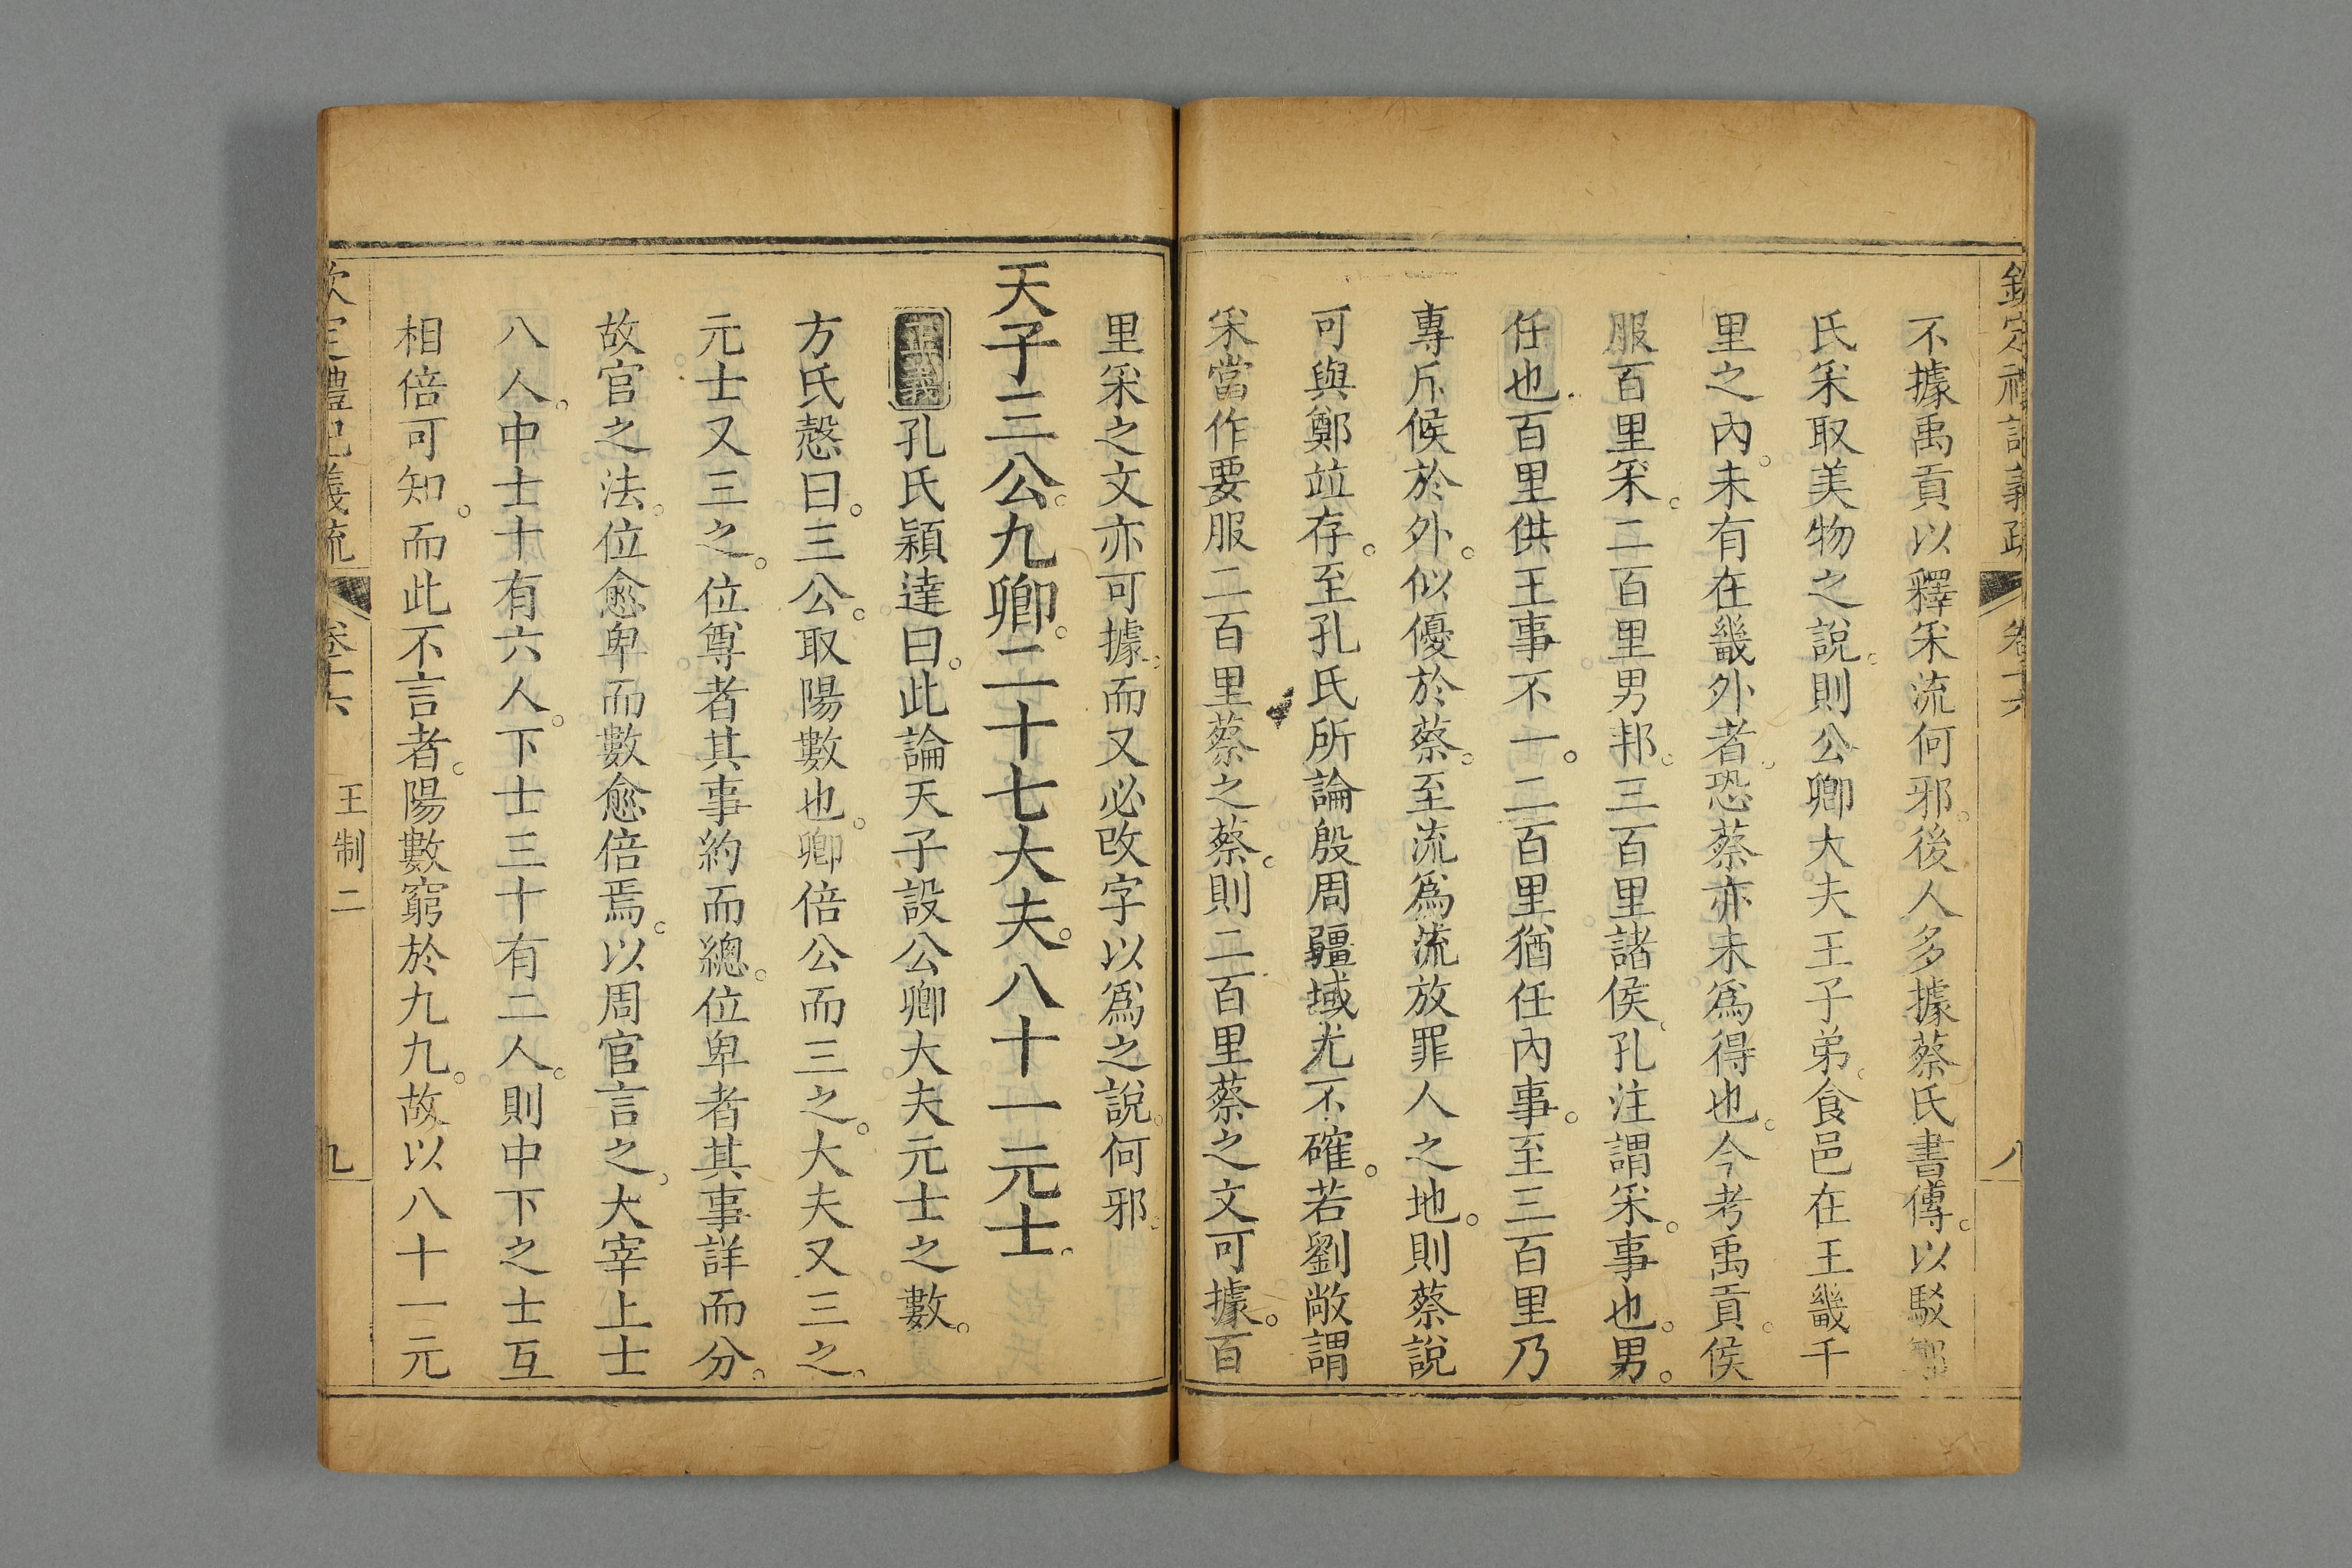 欽定禮記義疏 卷十六 八
不據禹貢以釋采流何邪。後人多據蔡氏書傳。以駁鄭
氏采取美物之說。則公卿大夫王子弟。食邑在王畿千
里之內。未有在畿外者。恐蔡亦未為得也。今考禹貢。侯
服百里采。二百里男邦。三百里諸侯。孔注謂采。事也。男。
任也。百里供王事不一。二百里猶任內事。至三百里乃
專斥候於外。似優於蔡。至流為流放罪人之地。則蔡說
可與鄭竝存。至孔氏所論殷周疆域尤不確。若劉敞謂
采當作要服二百里蔡之蔡。則二百里蔡之文可據。百
里采之文亦可據。而又必改字以為之說。何邪。
天子三公。九卿。二十七大夫。八十一元士。
正義孔氏穎達曰。此論天子設公卿大夫元士之數。
方氏慤曰。三公。取陽數也。卿倍公而三之。大夫又三之。
元士又三之。位尊者其事約而總。位卑者其事詳而分。
故官之法。位愈卑而數愈倍焉。以周官言之。大宰上士
八人。中士十有六人。下士三十有二人。則中下之士互
相倍可知。而此不言者。陽數窮於九九。故以八十一元
欽定禮記義疏 卷十六 王制二 九